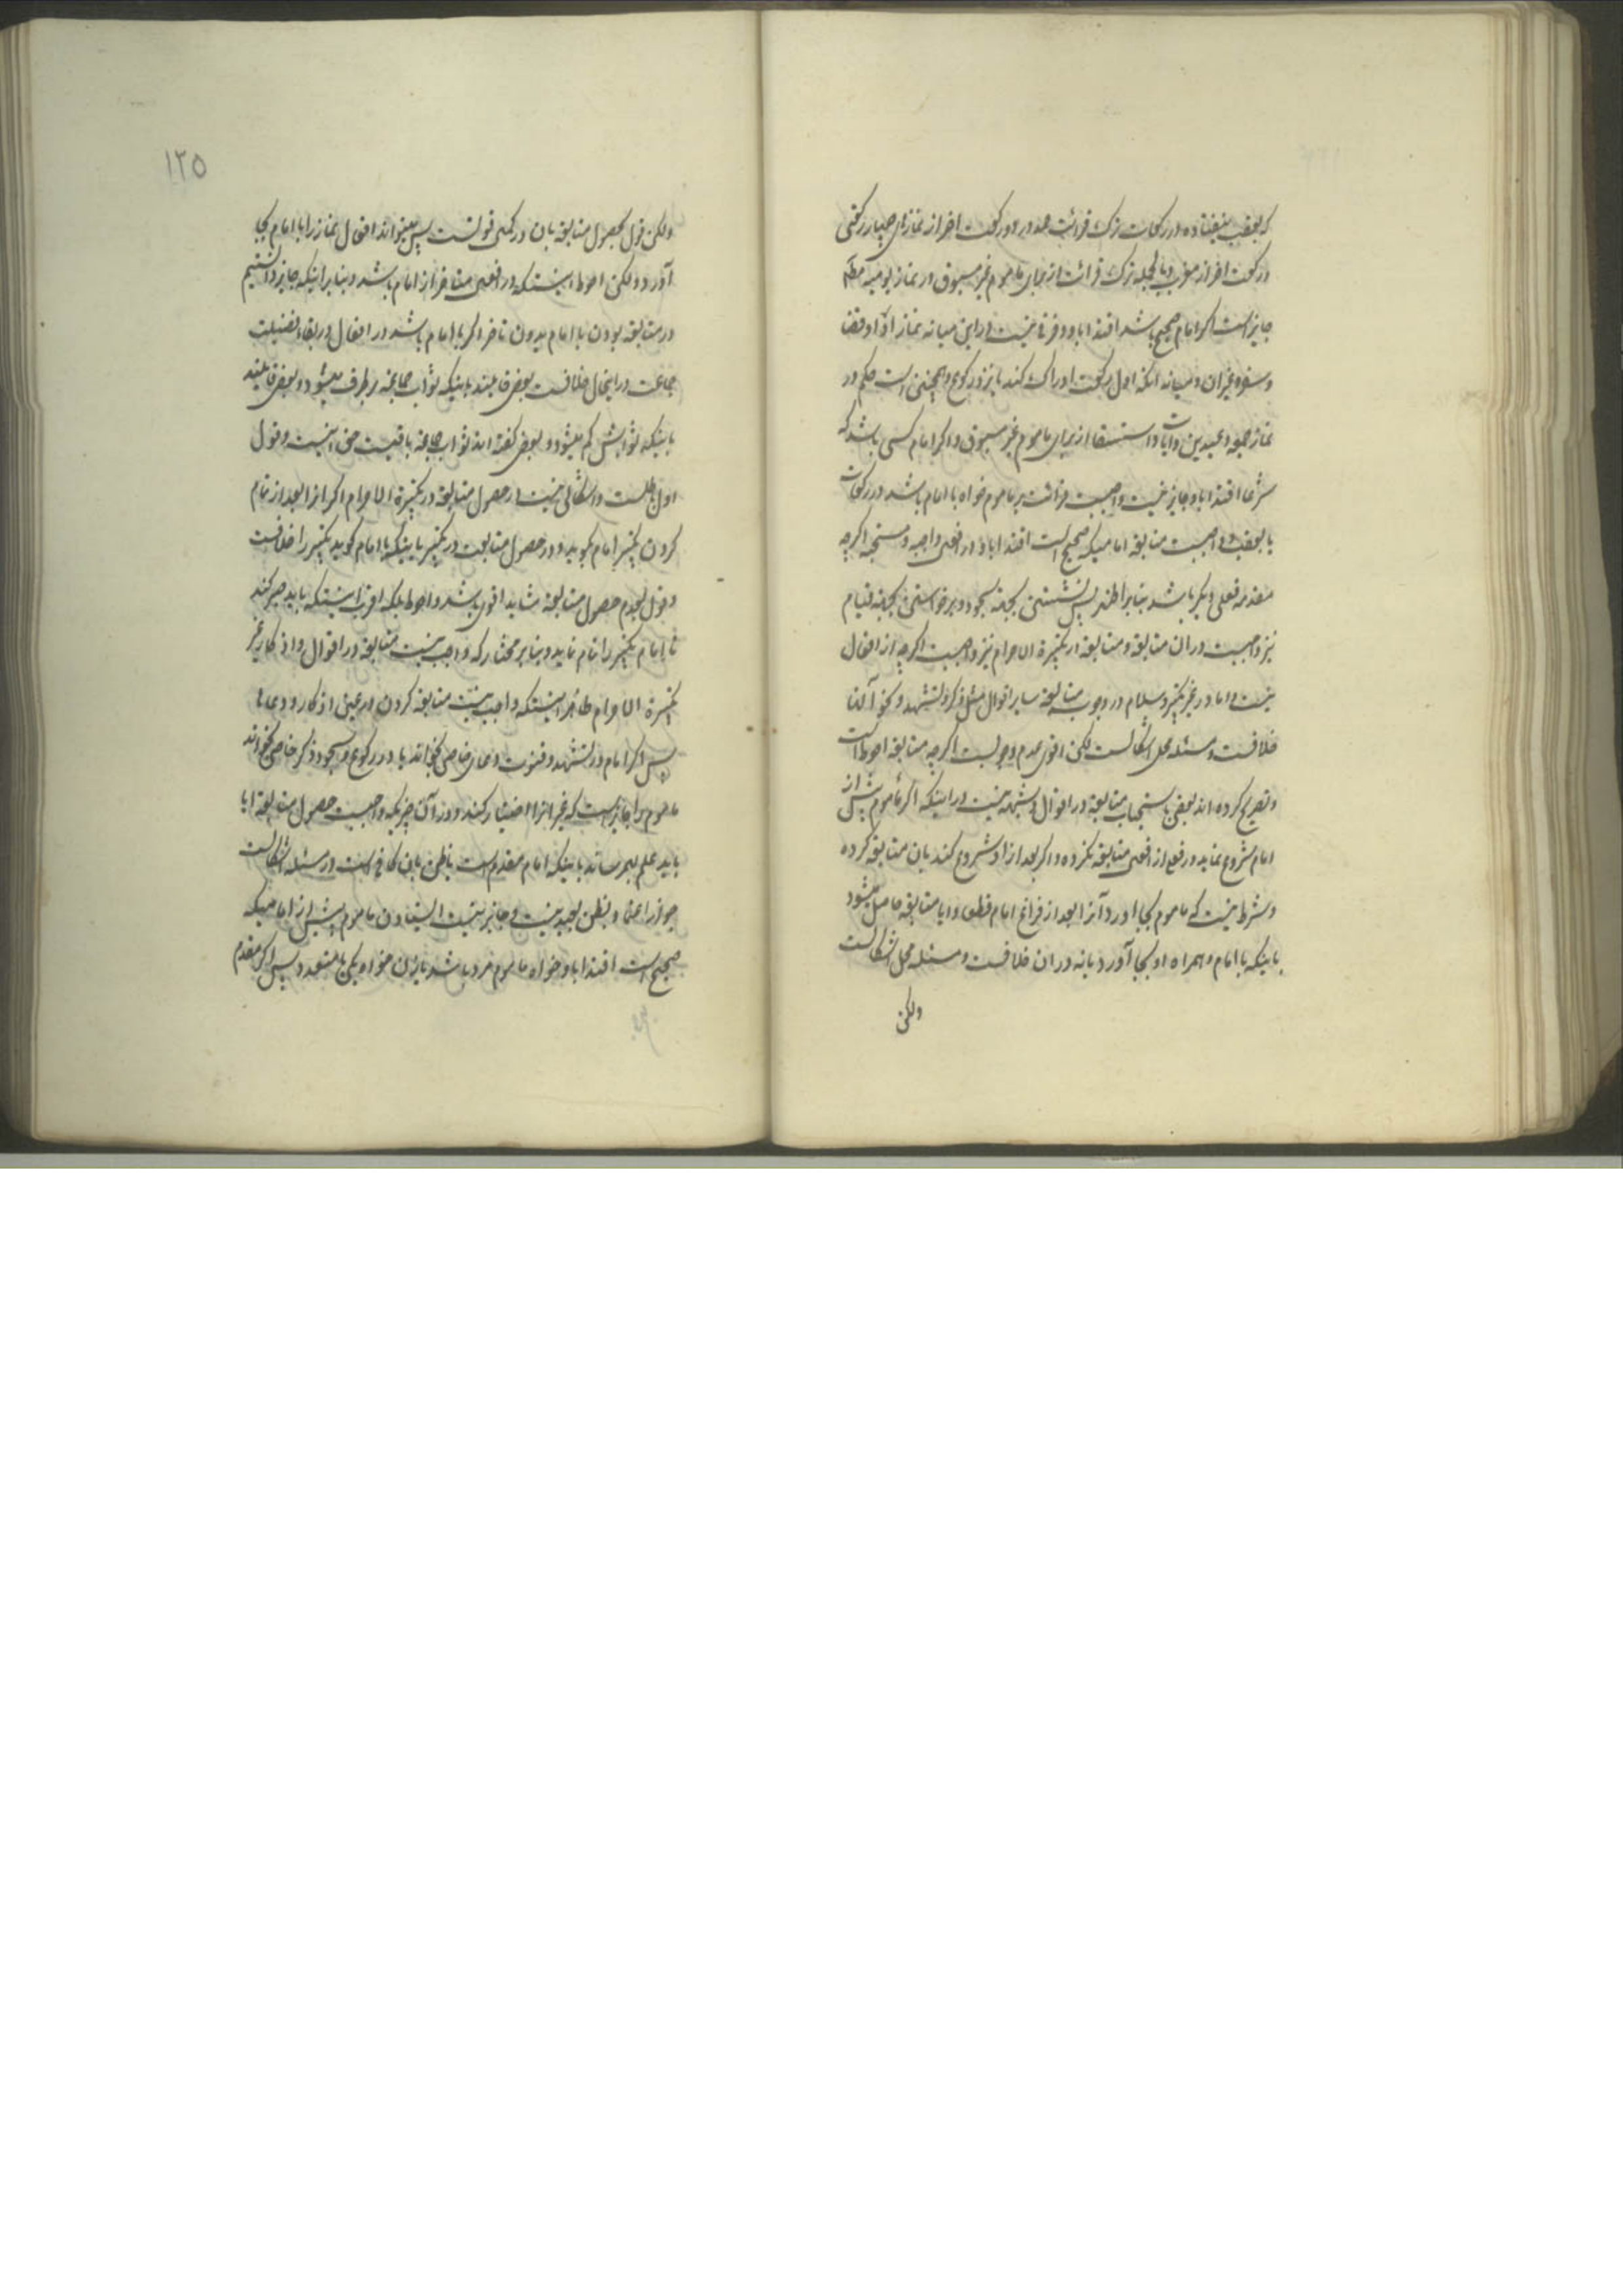 که بعقب نیفتاده و در رکعات ترک قرائت حمد در دو رکعت اخر از نمازهای چهار رکعتی
و رکعت اخر از مغرب و بالجمله ترک قرائت از برای ماموم غیر مسبوق در نماز یومیه مطلقا
جایز است اگر امام صحیح باشد اقتدا باو و فرقی نیست در این میانه نماز ادا و قضا
و سفر و غیر ان و میانه انکه اول رکعت ادراک کند یا نزد رکوع و همچنین است حکم در
نماز جمعه و عیدین و ایات و استسقا از برای ماموم غیر مسبوق و اگر امام کسی باشد که
شرعا اقتدا باو جایز نیست واجبست قرائت بر ماموم خواه با امام باشد در رکعات
یا بعقب و واجبست متابعة امامیکه صحیح است اقتدا باو در افعال واجبه و مستحبه اگرچه
مقدمه فعلی دیگر باشد بنابر اظهر پس نشستن بجهة سجود و برخواستن بجهة قیام
نیز واجبست در ان متابعة و متابعة در تکبیرة الاحرام نیز واجبست اگرچه از افعال
نیست و اما در غیر تکبیر و سلام در وجوب متابعة سایر اقوال مثل ذکر و تشهد و نحو آنها
خلافست و مسئله محل اشکالست لکن اقوی عدم وجوبست اگرچه متابعة احوط است
و تصریح کرده اند بعضی باستحباب متابعة در اقوال و شبهه نیست در اینکه اگر ماموم پیش از
امام شروع نماید در فعلی از افعال متابعة نکرده و اگر بعد از او شروع کند بان متابعة کرده
و شرط نیست که ماموم بجا اورد آنرا بعد از فراغ امام قطعا و ایا متابعة حاصل میشود
باینکه با امام و همراه او بجا آورد یا نه در ان خلافست و مسئله محل اشکالست
ولکن
١٢٥
ولکن قول بحصول متابعة بان در کمال قوتست پس میتواند افعال نماز را با امام بجا
آورد ولکن احوط اینستکه در افعال متاخر از امام باشد و بنابر اینکه جایز دانستیم
در متابعة بودن با امام بدون تاخر اگر با امام باشد در افعال در بقاء فضیلت
جماعت در اینحال خلافست بعضی قایلند باینکه ثواب جماعة بر طرف میشود و بعضی قایلند
باینکه ثوابش کم میشود و بعضی گفته اند ثواب جماعة باقیست حق اینست و قول
اول باطلست و اشکالی نیست در حصول متابعة در تکبیرة الاحرام اگر انرا بعد از تمام
کردن تکبیر امام بگوید و در حصول متابعت در تکبیر باینکه با امام گوید تکبیر را خلافست
و قول بعدم حصول متابعة شاید اقوی باشد و احوط بلکه اقرب اینستکه باید صبر کند
تا امام تکبیر را تمام نماید و بنابر مختار که واجب نیست متابعة در اقوال و اذکار غیر
تکبیرة الاحرام ظاهر اینستکه واجب نیست متابعة کردن در عین اذکار و دعاها
پس اگر امام در تشهد و قنوت دعای خاصی بخواند یا در رکوع و سجود ذکر خاصی بخواند
ماموم را جایز است که غیر انرا اختیار کند و در آن چیزیکه واجبست حصول متابعة ایا
باید علم بهمرساند باینکه امام مقدم است یا ظن بان کافی است در مسئله اشکالست
جواز اعتماد بظن بعید نیست و جایز نیست ایستادن ماموم پیش از امامیکه
صحیح است اقتدا باو خواه ماموم مرد باشد یا زن خواه یکی یا متعدد پس اگر مقدم